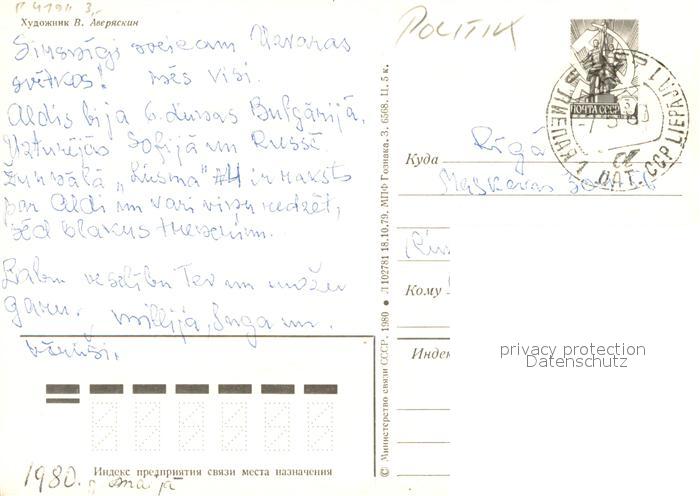 Р 4194 3,-
Художник В. Аверяскин
Sirsnīgi sveicam Uzvaras
svētkos! mēs visi.
Aldis bija 6. dienas Bulgārijā.
Uzturējās Sofijā un Russē.
Žurnālā „Liesma" #4 ir raksts
par Aldi un vari viņu redzēt,
sēd blakus
Labu veselību Tev un možu
garu. Millija, Inga un
1980. g. maijā
Индекс предприятия связи места назначения
© Министерство связи СССР. 1980 • Л 102781 18.10.79. МПФ Гознака. З. 6568. Ц. 5 к.
POLITIK
ПОЧТА СССР
LIEPAJA 1
ЛАТ. ССР
Куда Rīgā
Maskavas
Кому
Индек
privacy protection
Datenschutz